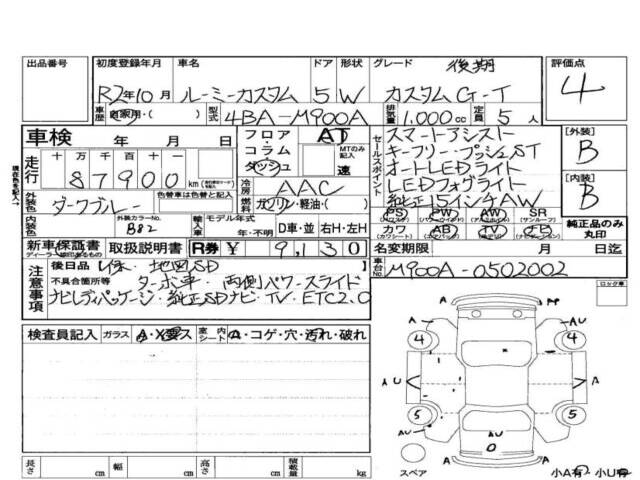 出品番号 初度登録年月 車名 ドア 形状 グレード 後期 評価点
R2年10月 ルーミーカスタム 5 W カスタムG-T 4
車歴 自家用・( ) 型式 4BA-M900A 排気量 1.000cc 定員 5人
車検 年 月 日
フロア・コラム・ダッシュ AT MTのみ記入 速
セールスポイント
スマートアシスト
キーフリー・プッシュST
オートLEDライト
LEDフォグライト
純正15インチAW
[外装] B
[内装] B
走行 十万 千 百 十
87900 km
冷房 AAC
燃料 ガソリン・軽油・( )
外装色 色替車は色替と記入 ダークブルー
内装色 外装カラーNo. B82
輸入車 モデル年式 年・不明 D車・並 右H・左H
PS PW AW SR
カワ AB TV ナビ
純正品のみ丸印
新車保証書 取扱説明書 R券 ¥ 9,130
ディーラー捺印あるもの
名変期限 月 日迄
車台No. M900A-0502002
注意事項
後日品 地図SD
不具合箇所等 ターボ車・両側パワースライド
ナビレディパッケージ・純正SDナビ・TV・ETC2.0
ロック車
検査員記入 ガラス A・X要ス 室内シート A・コゲ・穴・汚れ・破れ
A A
AU AU
4 4
AU A
5 5
AU AU
0
A A
スペア 小A有 小U有
長さ cm 幅 cm 高さ cm 積載量 kg